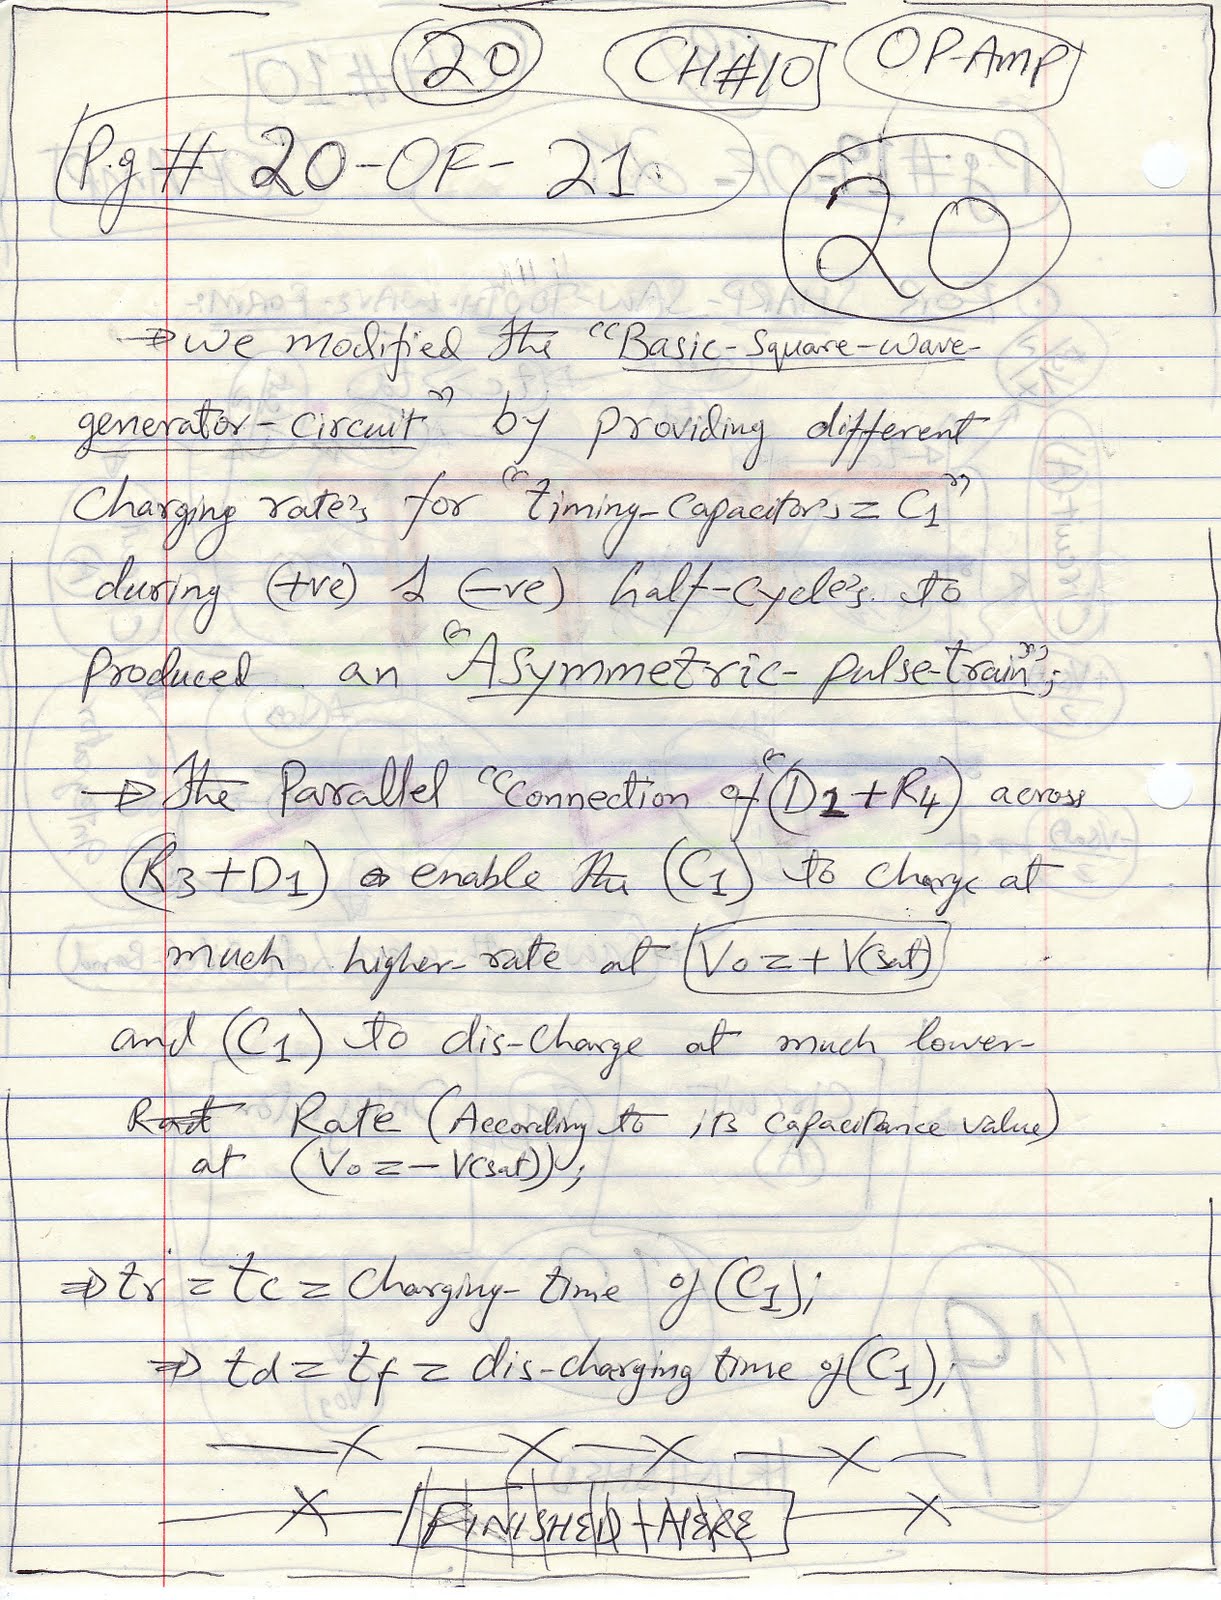 20 CH#10 OP-AMP
Pg # 20-OF-21
20
→ we modified the "Basic-Square-wave-
generator-circuit" by providing different
charging rate's for "timing-capacitor's = C1"
during (+ve) & (-ve) half-cycle's. to
Produced an "Asymmetric-pulse-train";
→ the Parallel "Connection of "(D1+R4) across
(R3+D1) enable the (C1) to charge at
much higher-rate at Vo=+V(sat)
and (C1) to dis-charge at much lower-
Rate (According to its capacitance value)
at (Vo=-V(sat));
⇒ tr = tc = Charging-time of (C1);
⇒ td = tf = dis-charging time of (C1);
FINISHED HERE